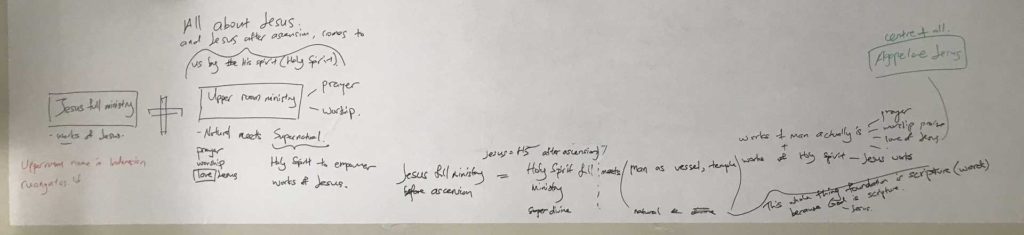 All about Jesus.
and Jesus after ascension, comes to
us by the his spirit (Holy Spirit)
Jesus full ministry
- works of Jesus.
Upper room name in Indonesian
ruangatas.
Upper room ministry
prayer
worship
- Natural meets Supernatural.
prayer
worship
love Jesus
Holy Spirit to empower
works of Jesus.
Jesus = HS after ascension
Jesus full ministry
before ascension
=
Holy Spirit full
Ministry
super divine
meets
man as vessel, temple
natural
centre of all.
Agape love Jesus
works of man actually is
prayer
worship praise
love of Jesus
+
works of Holy Spirit - Jesus works
This whole thing foundation is scripture (words)
because God is scripture.
Jesus.